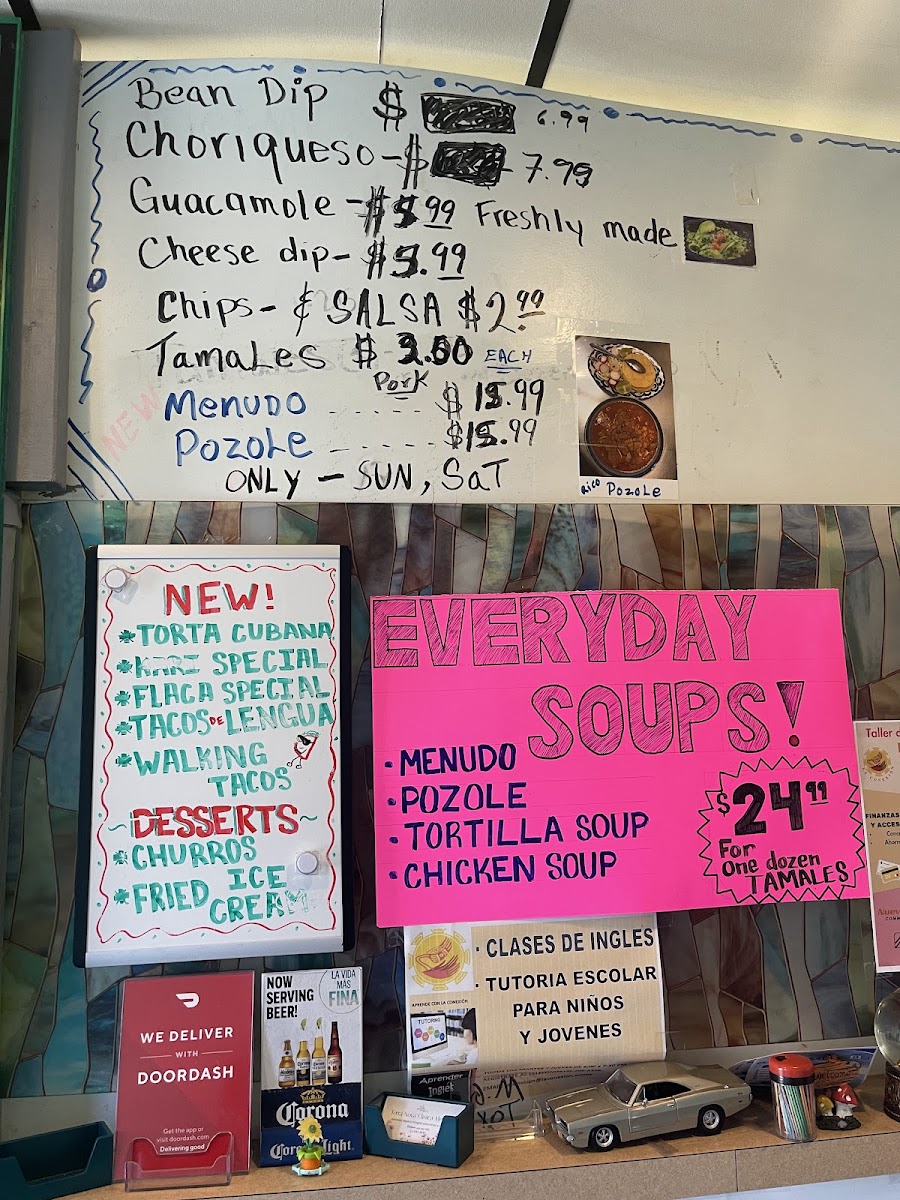 Bean Dip $ 6.99
Choriqueso - $ 7.99
Guacamole - $5.99 Freshly made
Cheese dip - $5.99
Chips - & SALSA $2.99
Tamales $ 3.00 EACH
Pork
NEW
Menudo ------ $ 15.99
Pozole ------ $15.99
ONLY - SUN, SaT
Rico Pozole
NEW!
TORTA CUBANA
SPECIAL
FLACA SPECIAL
TACOS DE LENGUA
WALKING
TACOS
~DESSERTS~
CHURROS
FRIED ICE
CREAM
EVERYDAY
SOUPS!
• MENUDO
• POZOLE
• TORTILLA SOUP
• CHICKEN SOUP
$24.99
For
One dozen
TAMALES
Taller
FINANZAS
Y ACCES
• CLASES DE INGLES
• TUTORIA ESCOLAR
PARA NIÑOS
Y JOVENES
APRENDE CON LA CONEXIÓN
TUTORING
Aprender
Inglés
WE DELIVER
WITH
DOORDASH
Get the app or
visit doordash.com
Delivering good
NOW
SERVING
BEER!
LA VIDA
MÁS
FINA
Corona
Corona Light